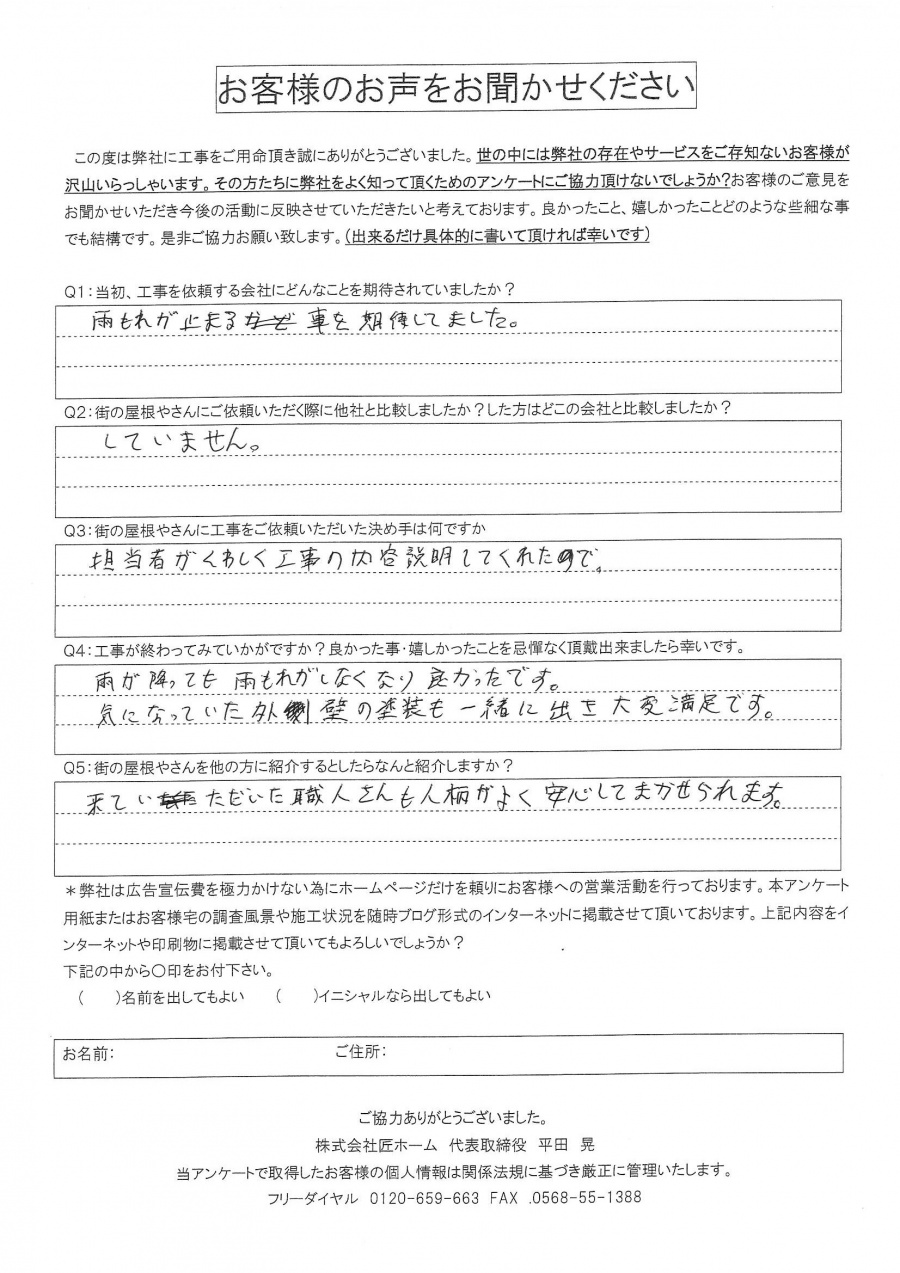 お客様のお声をお聞かせください
この度は弊社に工事をご用命頂き誠にありがとうございました。世の中には弊社の存在やサービスをご存知ないお客様が
沢山いらっしゃいます。その方たちに弊社をよく知って頂くためのアンケートにご協力頂けないでしょうか?お客様のご意見を
お聞かせいただき今後の活動に反映させていただきたいと考えております。良かったこと、嬉しかったことどのような些細な事
でも結構です。是非ご協力お願い致します。(出来るだけ具体的に書いて頂ければ幸いです)
Q1:当初、工事を依頼する会社にどんなことを期待されていましたか?
雨もれが止まる事を期待してました。
Q2:街の屋根やさんにご依頼いただく際に他社と比較しましたか?した方はどこの会社と比較しましたか?
していません。
Q3:街の屋根やさんに工事をご依頼いただいた決め手は何ですか
担当者がくわしく工事の内容説明してくれたので。
Q4:工事が終わってみていかがですか?良かった事・嬉しかったことを忌憚なく頂戴出来ましたら幸いです。
雨が降っても雨もれがしなくなり良かったです。
気になっていた外壁の塗装も一緒に出き大変満足です。
Q5:街の屋根やさんを他の方に紹介するとしたらなんと紹介しますか?
来ていただいた職人さんも人柄がよく安心してまかせられます。
*弊社は広告宣伝費を極力かけない為にホームページだけを頼りにお客様への営業活動を行っております。本アンケート
用紙またはお客様宅の調査風景や施工状況を随時ブログ形式のインターネットに掲載させて頂いております。上記内容をイ
ンターネットや印刷物に掲載させて頂いてもよろしいでしょうか?
下記の中から〇印をお付下さい。
(　　)名前を出してもよい　　(　　)イニシャルなら出してもよい
お名前:　ご住所:
ご協力ありがとうございました。
株式会社匠ホーム　代表取締役　平田　晃
当アンケートで取得したお客様の個人情報は関係法規に基づき厳正に管理いたします。
フリーダイヤル　0120-659-663 FAX .0568-55-1388